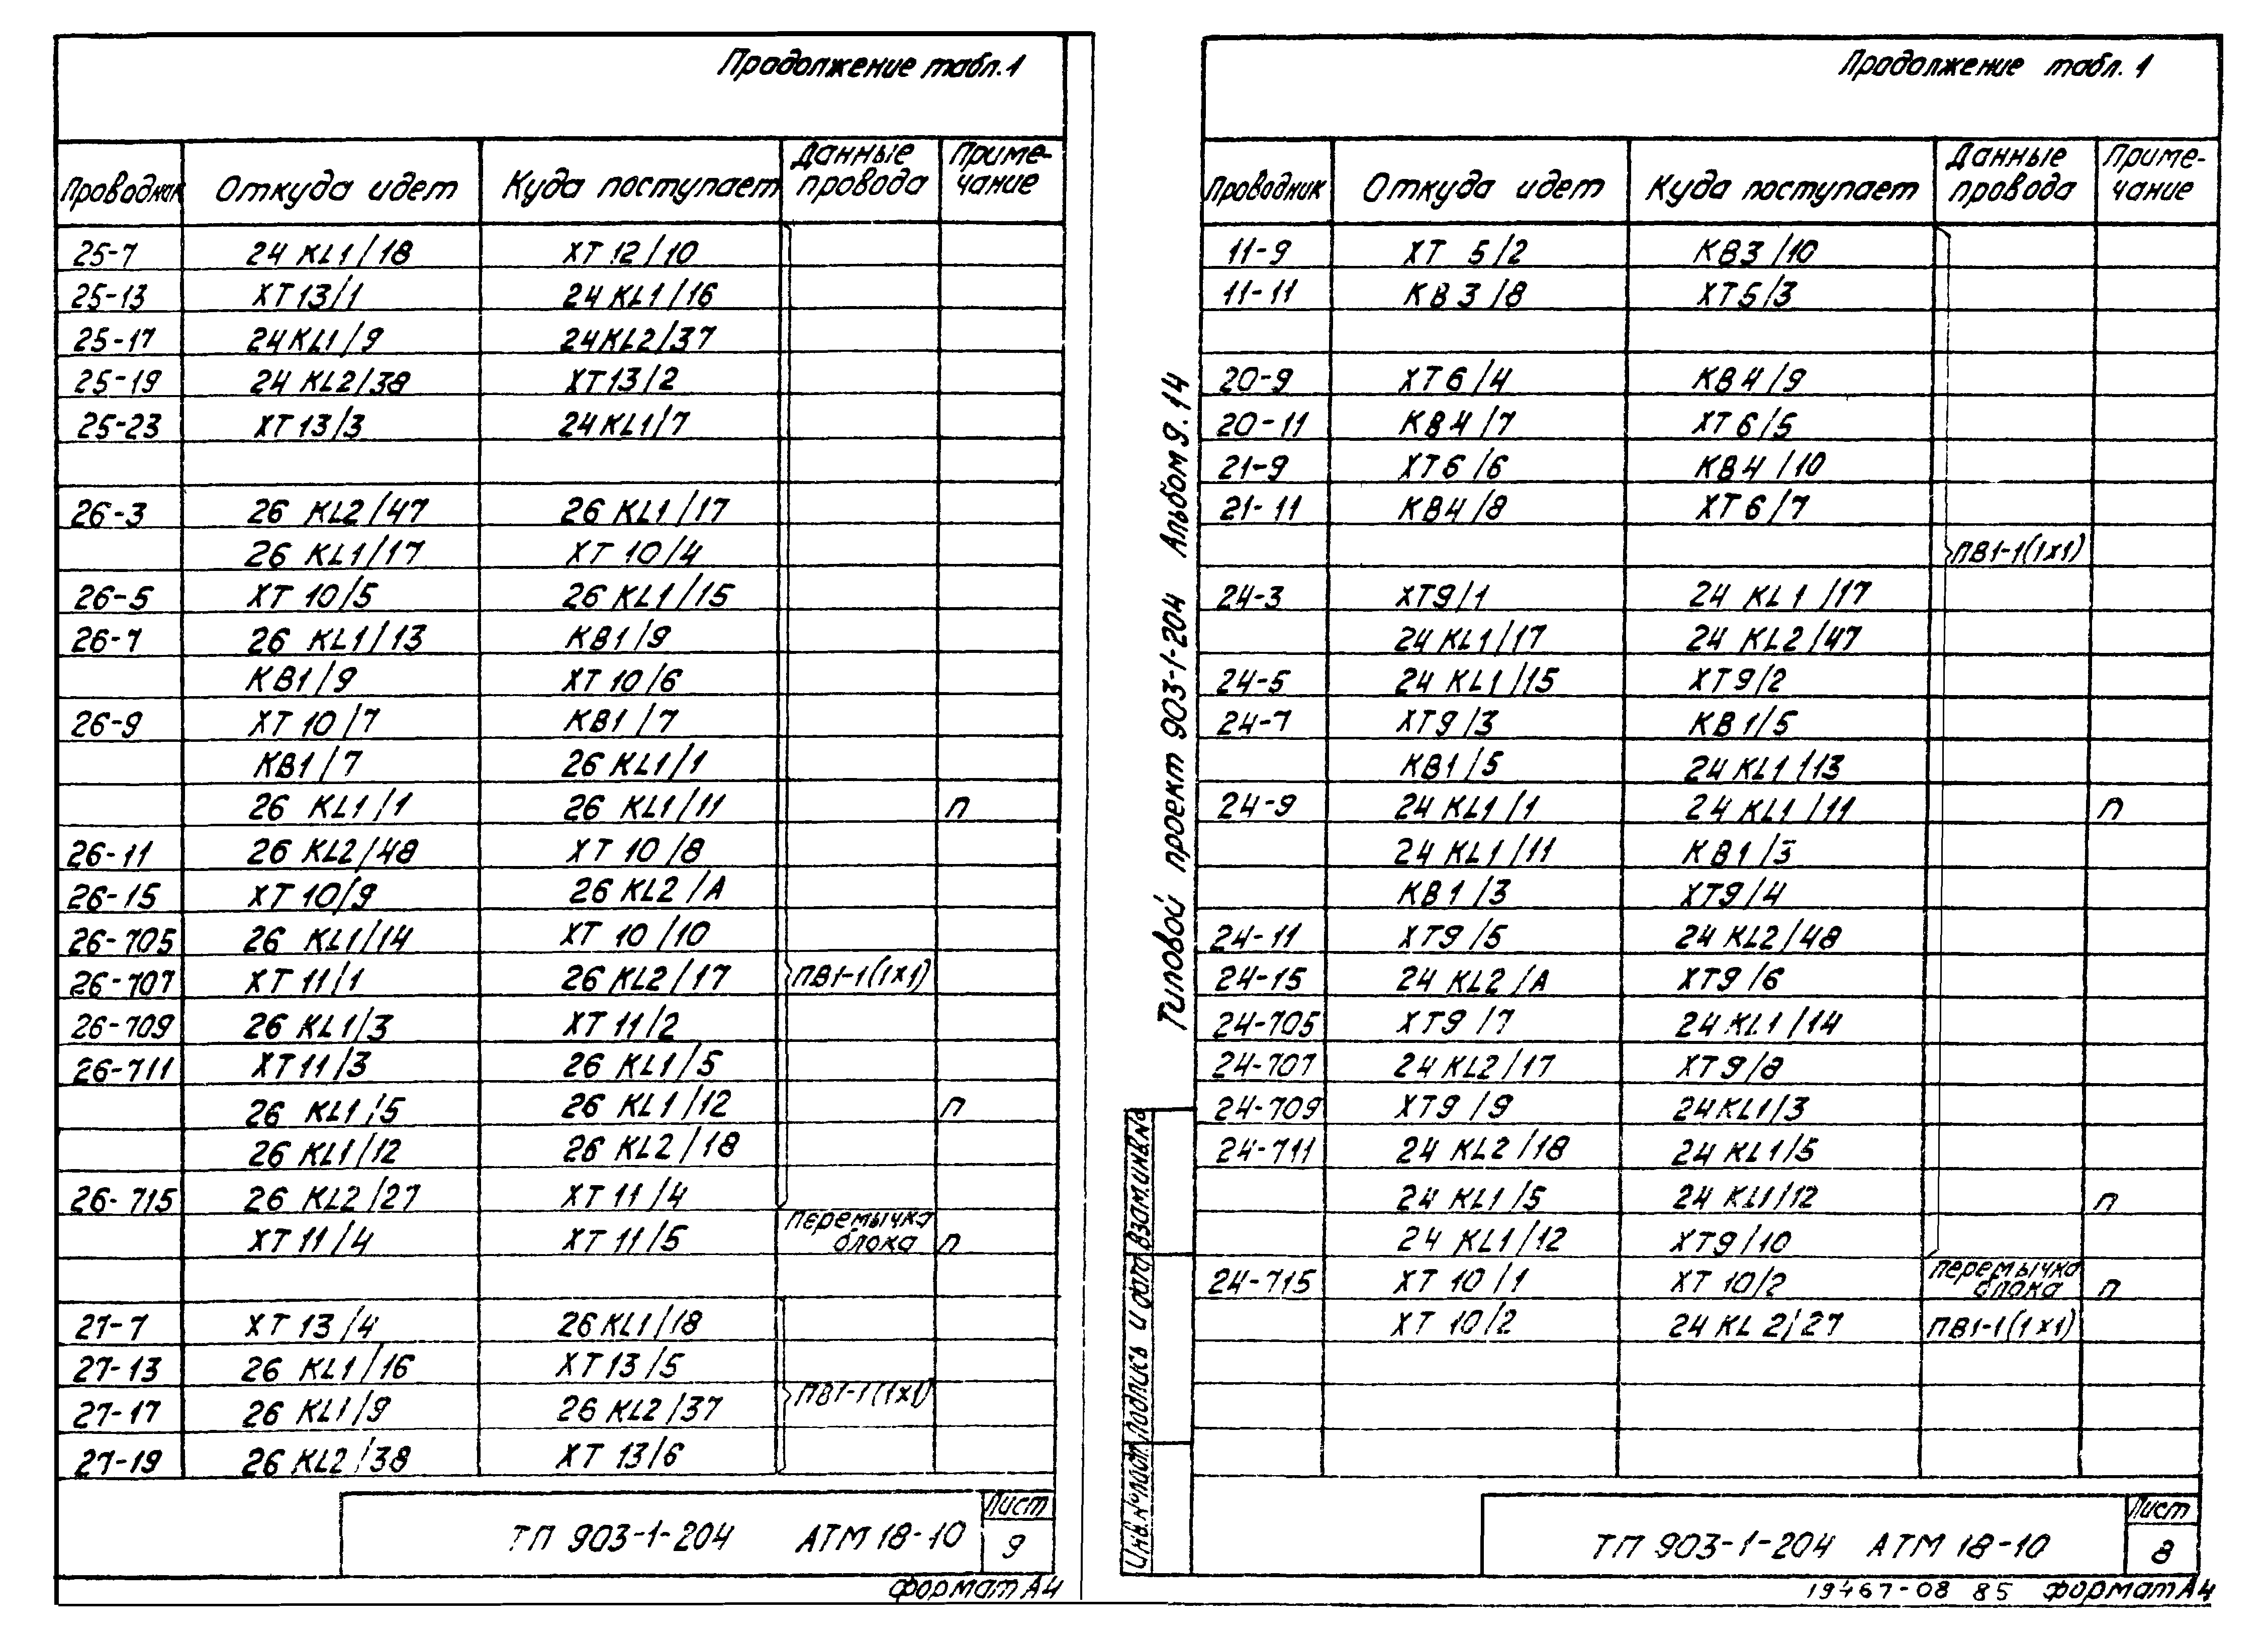 Продолжение табл.1
Проводник Откуда идет Куда поступает Данные провода Приме-чание
25-7 24 KL1/18 XT 12/10
25-13 XT13/1 24KL1/16
25-17 24KL1/9 24KL2/37
25-19 24 KL2/38 XT13/2
25-23 XT13/3 24KL1/7
26-3 26 KL2/47 26 KL1/17
26 KL1/17 XT 10/4
26-5 XT 10/5 26 KL1/15
26-7 26 KL1/13 КВ1/9
КВ1/9 XT 10/6
26-9 XT 10/7 КВ1/7
КВ1/7 26 KL1/1
26 KL1/1 26 KL1/11 п
26-11 26 KL2/48 XT 10/8
26-15 XT 10/9 26 KL2/А
26-705 26 KL1/14 XT 10/10
26-707 XT 11/1 26 KL2/17 ПВ1-1(1х1)
26-709 26 KL1/3 XT 11/2
26-711 XT11/3 26 KL1/5
26 KL1/5 26 KL1/12 п
26 KL1/12 26 KL2/18
26-715 26 KL2/27 XT 11/4
XT 11/4 XT 11/5 перемычка блока п
27-7 XT 13/4 26KL1/18
27-13 26 KL1/16 XT13/5
27-17 26 KL1/9 26 KL2/37 ПВ1-1(1х1)
27-19 26 KL2/38 XT 13/6
ТП 903-1-204 АТМ 18-10
Лист
9
формат А4
Продолжение табл. 1
Проводник Откуда идет Куда поступает Данные провода Приме-чание
11-9 XT 5/2 КВ3/10
11-11 КВ3/8 XT5/3
20-9 XT6/4 КВ4/9
20-11 КВ4/7 XT6/5
21-9 XT6/6 КВ4/10
21-11 КВ4/8 XT6/7
ПВ1-1(1х1)
24-3 XT9/1 24 KL1/17
24KL1/17 24 KL2/47
24-5 24 KL1/15 XT9/2
24-7 XT9/3 КВ1/5
КВ1/5 24KL1/13
24-9 24KL1/1 24KL1/11 п
24KL1/11 КВ1/3
КВ1/3 XT9/4
24-11 XT9/5 24KL2/48
24-15 24 KL2/А XT9/6
24-705 XT9/7 24KL1/14
24-707 24KL2/17 XT9/8
24-709 XT9/9 24KL1/3
24-711 24 KL2/18 24KL1/5
24KL1/5 24 KL1/12 п
24 KL1/12 XT9/10
24-715 XT 10/1 XT 10/2 перемычка блока п
XT 10/2 24KL2/27 ПВ1-1(1х1)
ТП 903-1-204 АТМ 18-10
Лист
8
19467-08 85 формат А4
Типовой проект 903-1-204 Альбом 9.14
Инв.№ лист. Подпись и дата Взам.инв.№